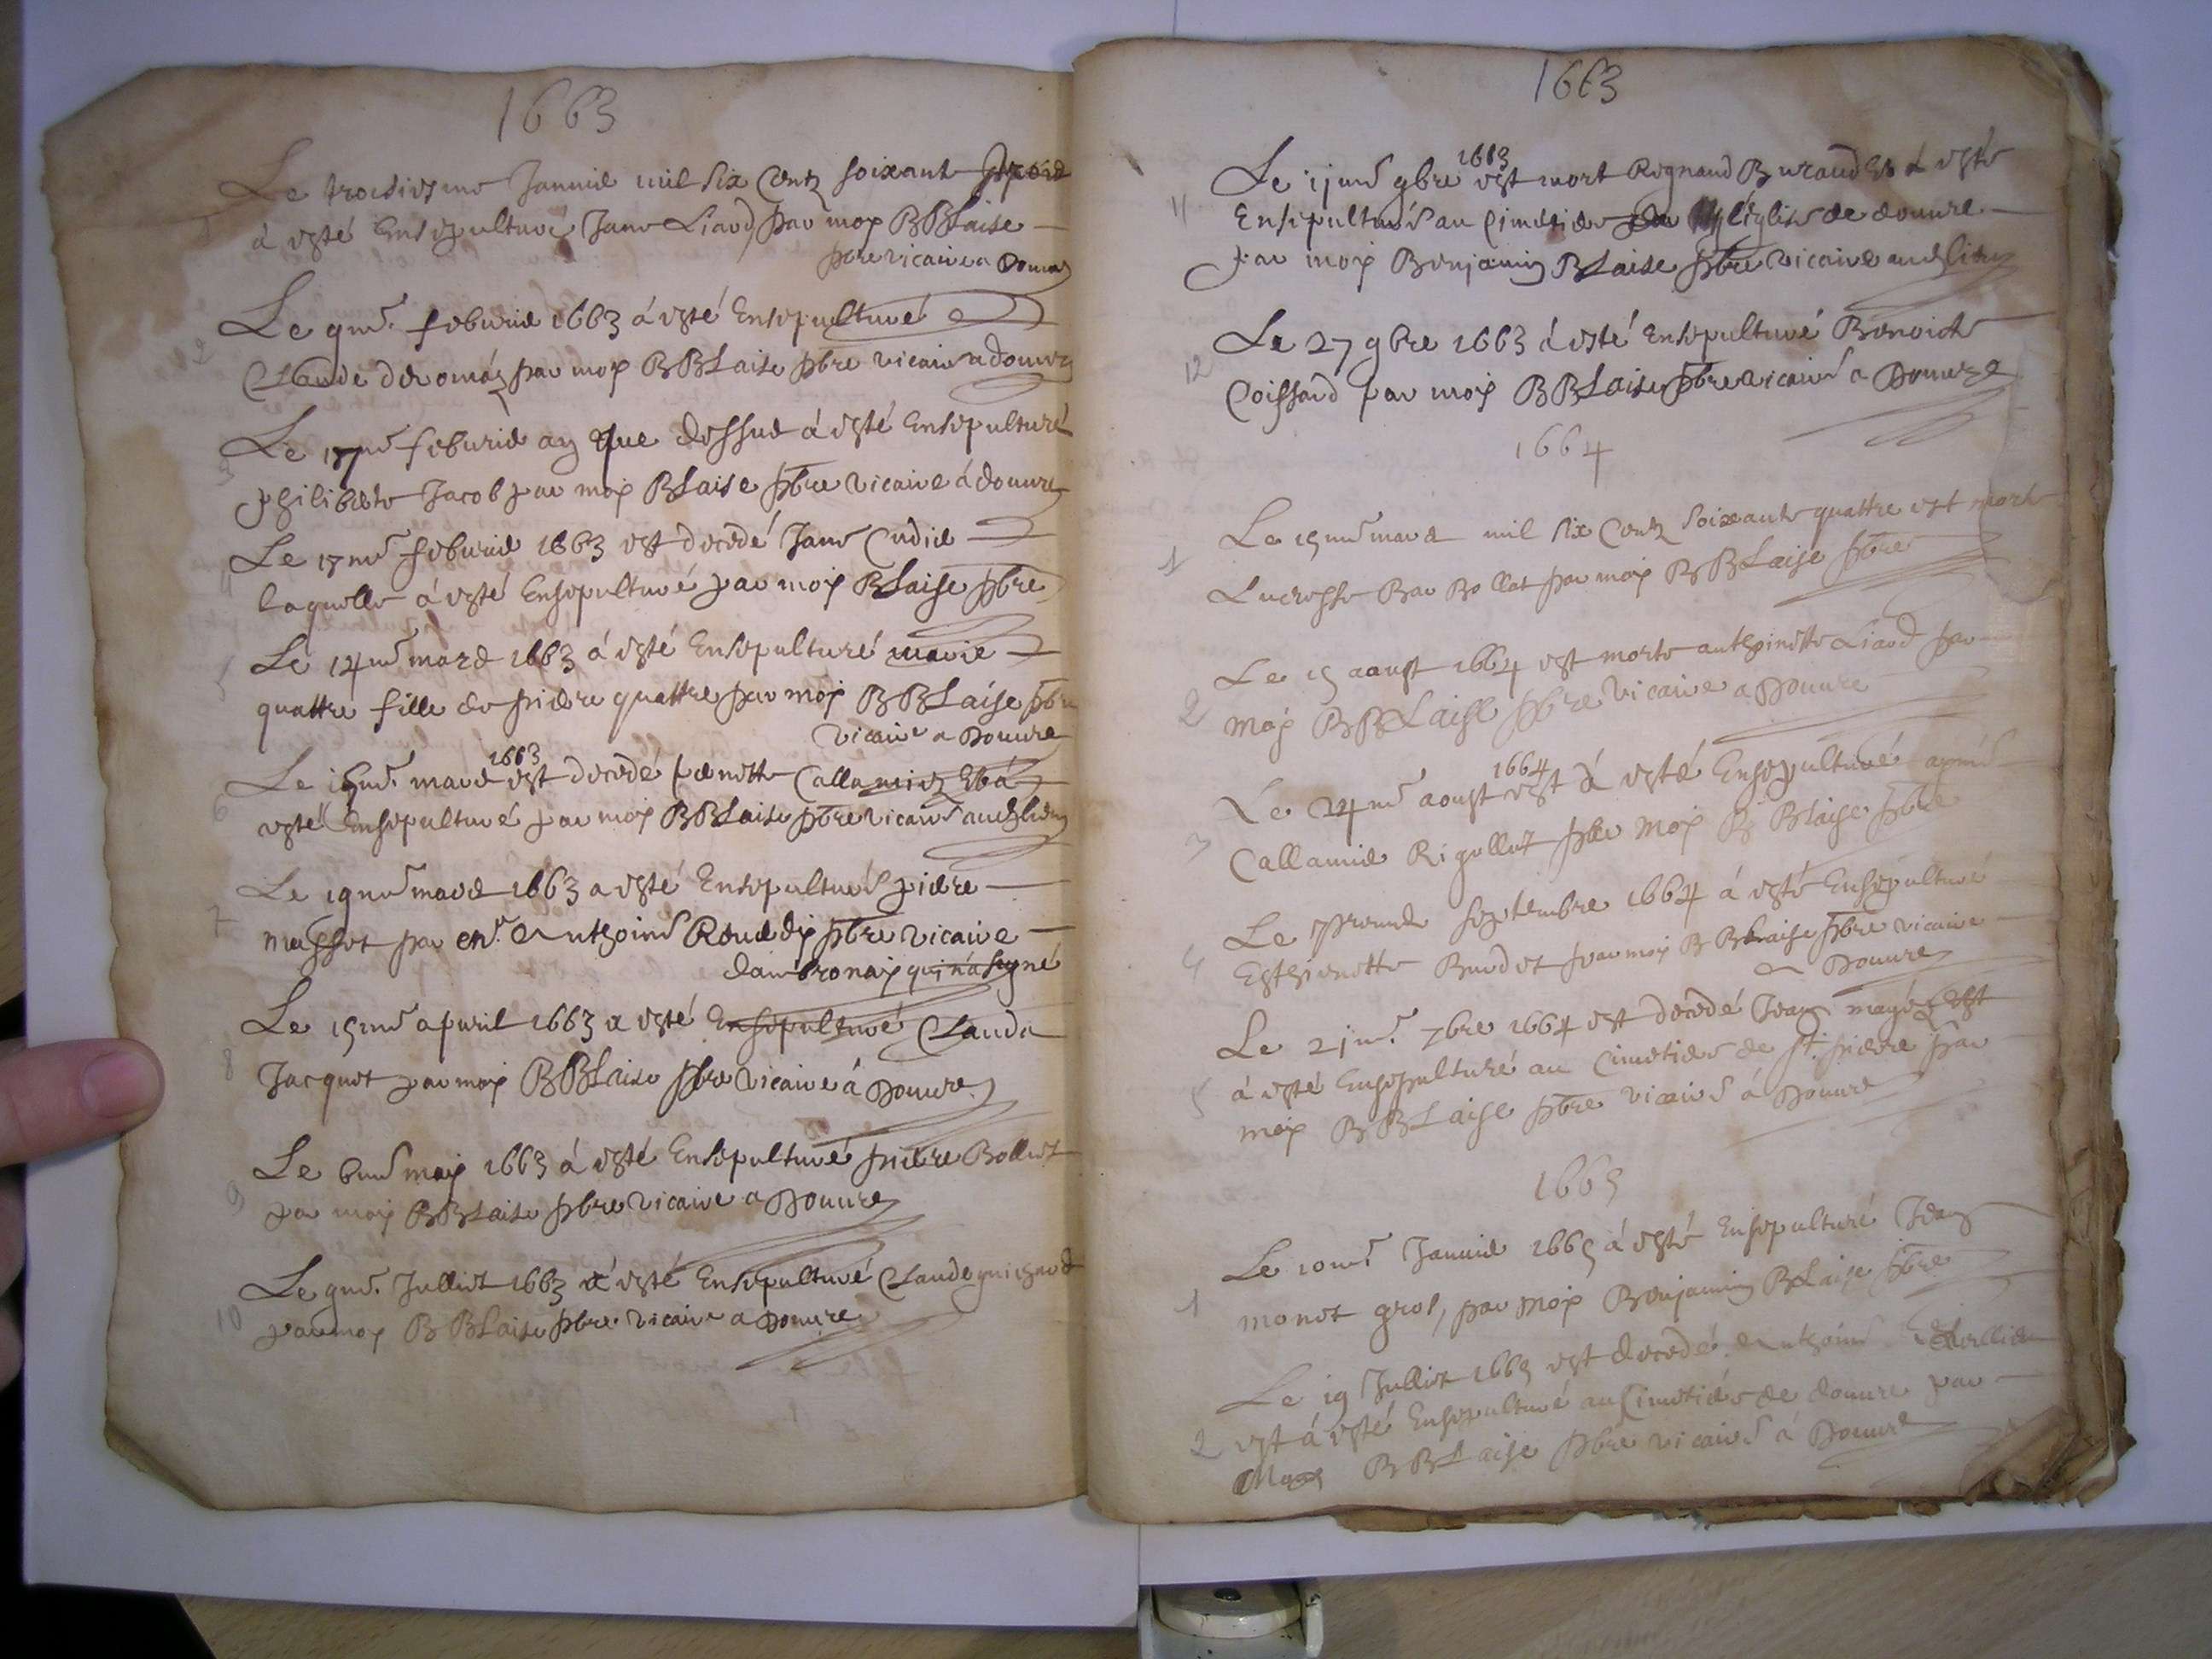 1663
Le troisiesme Januie mil six Centz soixant
1 à esté Ensepulturé Jane Liard par moy BBLaise
pbre vicaire a Douure
2 Le 9me. feburie 1663 á esté Ensepulturé
Claude par moy BBLaise pbre vicaire a douure
3 Le 17me feburie an que dessus á esté Ensepulturé
philiberte Jacob par moy BLaise pbre vicaire á douure
4 Le 17me feburie 1663 est decedé Jane Cudie
laquelle á esté Ensepulturé par moy BLaise pbre
5 Le 14me mars 1663 á esté Ensepulturé marie
quattre fille de pierre quattre par moy BBLaise pbre
vicaire a Douure
1663
6 Le me. mars est decedé penette Et á
esté Ensepulturé par moy BBLaise pbre vicaire audt lieu
7 Le 19me mars 1663 a esté Ensepulturé pierre
massot par Anthoine pbre vicaire
dambronay qui n'a signé
8 Le 15me apuril 1663 a esté Ensepulturé Clauda
Jacquet par moy BBLaise pbre vicaire á Douure
9 Le 6me may 1663 á esté Ensepulturé pierre Bolliet
par moy BBLaise pbre vicaire a Douure
10 Le 9me. Julliet 1663 á esté Ensepulturé Claude guichard
par moy BBLaise pbre vicaire a Douure
1663
1663
11 Le 11me 9bre est mort Regnaud Buraud Et á esté
Ensepulturé au Cimetiere de l'eglise de douure
par moy Benjamin BLaise pbre vicaire audt lieu
12 Le 27 9bre 1663 á esté Ensepulturé Benoicte
Coissard par moy BBLaise pbre vicaire a Douure
1664
1 Le 15me mars mil six Centz soixante quattre est morte
Lucresse par moy BBLaise pbre
2 Le 15 aoust 1664 est morte anthoinette Liard par
moy BBLaise pbre vicaire a Douure
1664
3 Le 24me aoust est á esté Ensepulturé
Callamie Rigollet par moy B BLaise pbre
4 Le septembre 1664 á esté Ensepulturé
Esthienette Burdet par moy B BLaise pbre vicaire
a Douure
5 Le 21me. 7bre 1664 est decedé Jean Est
á esté Ensepulturé au Cimetiere de St. pierre par
moy BBLaise pbre vicaire á Douure
1665
1 Le 10me Januie 1665 á esté Ensepulturé Jean
monet gros, par moy Benjamin BLaise pbre
2 Le 19 Julliet 1665 est decedé Anthoine
est á esté Ensepulturé au Cimetiere de douure par
Moy BBLaise pbre vicaire á Douure